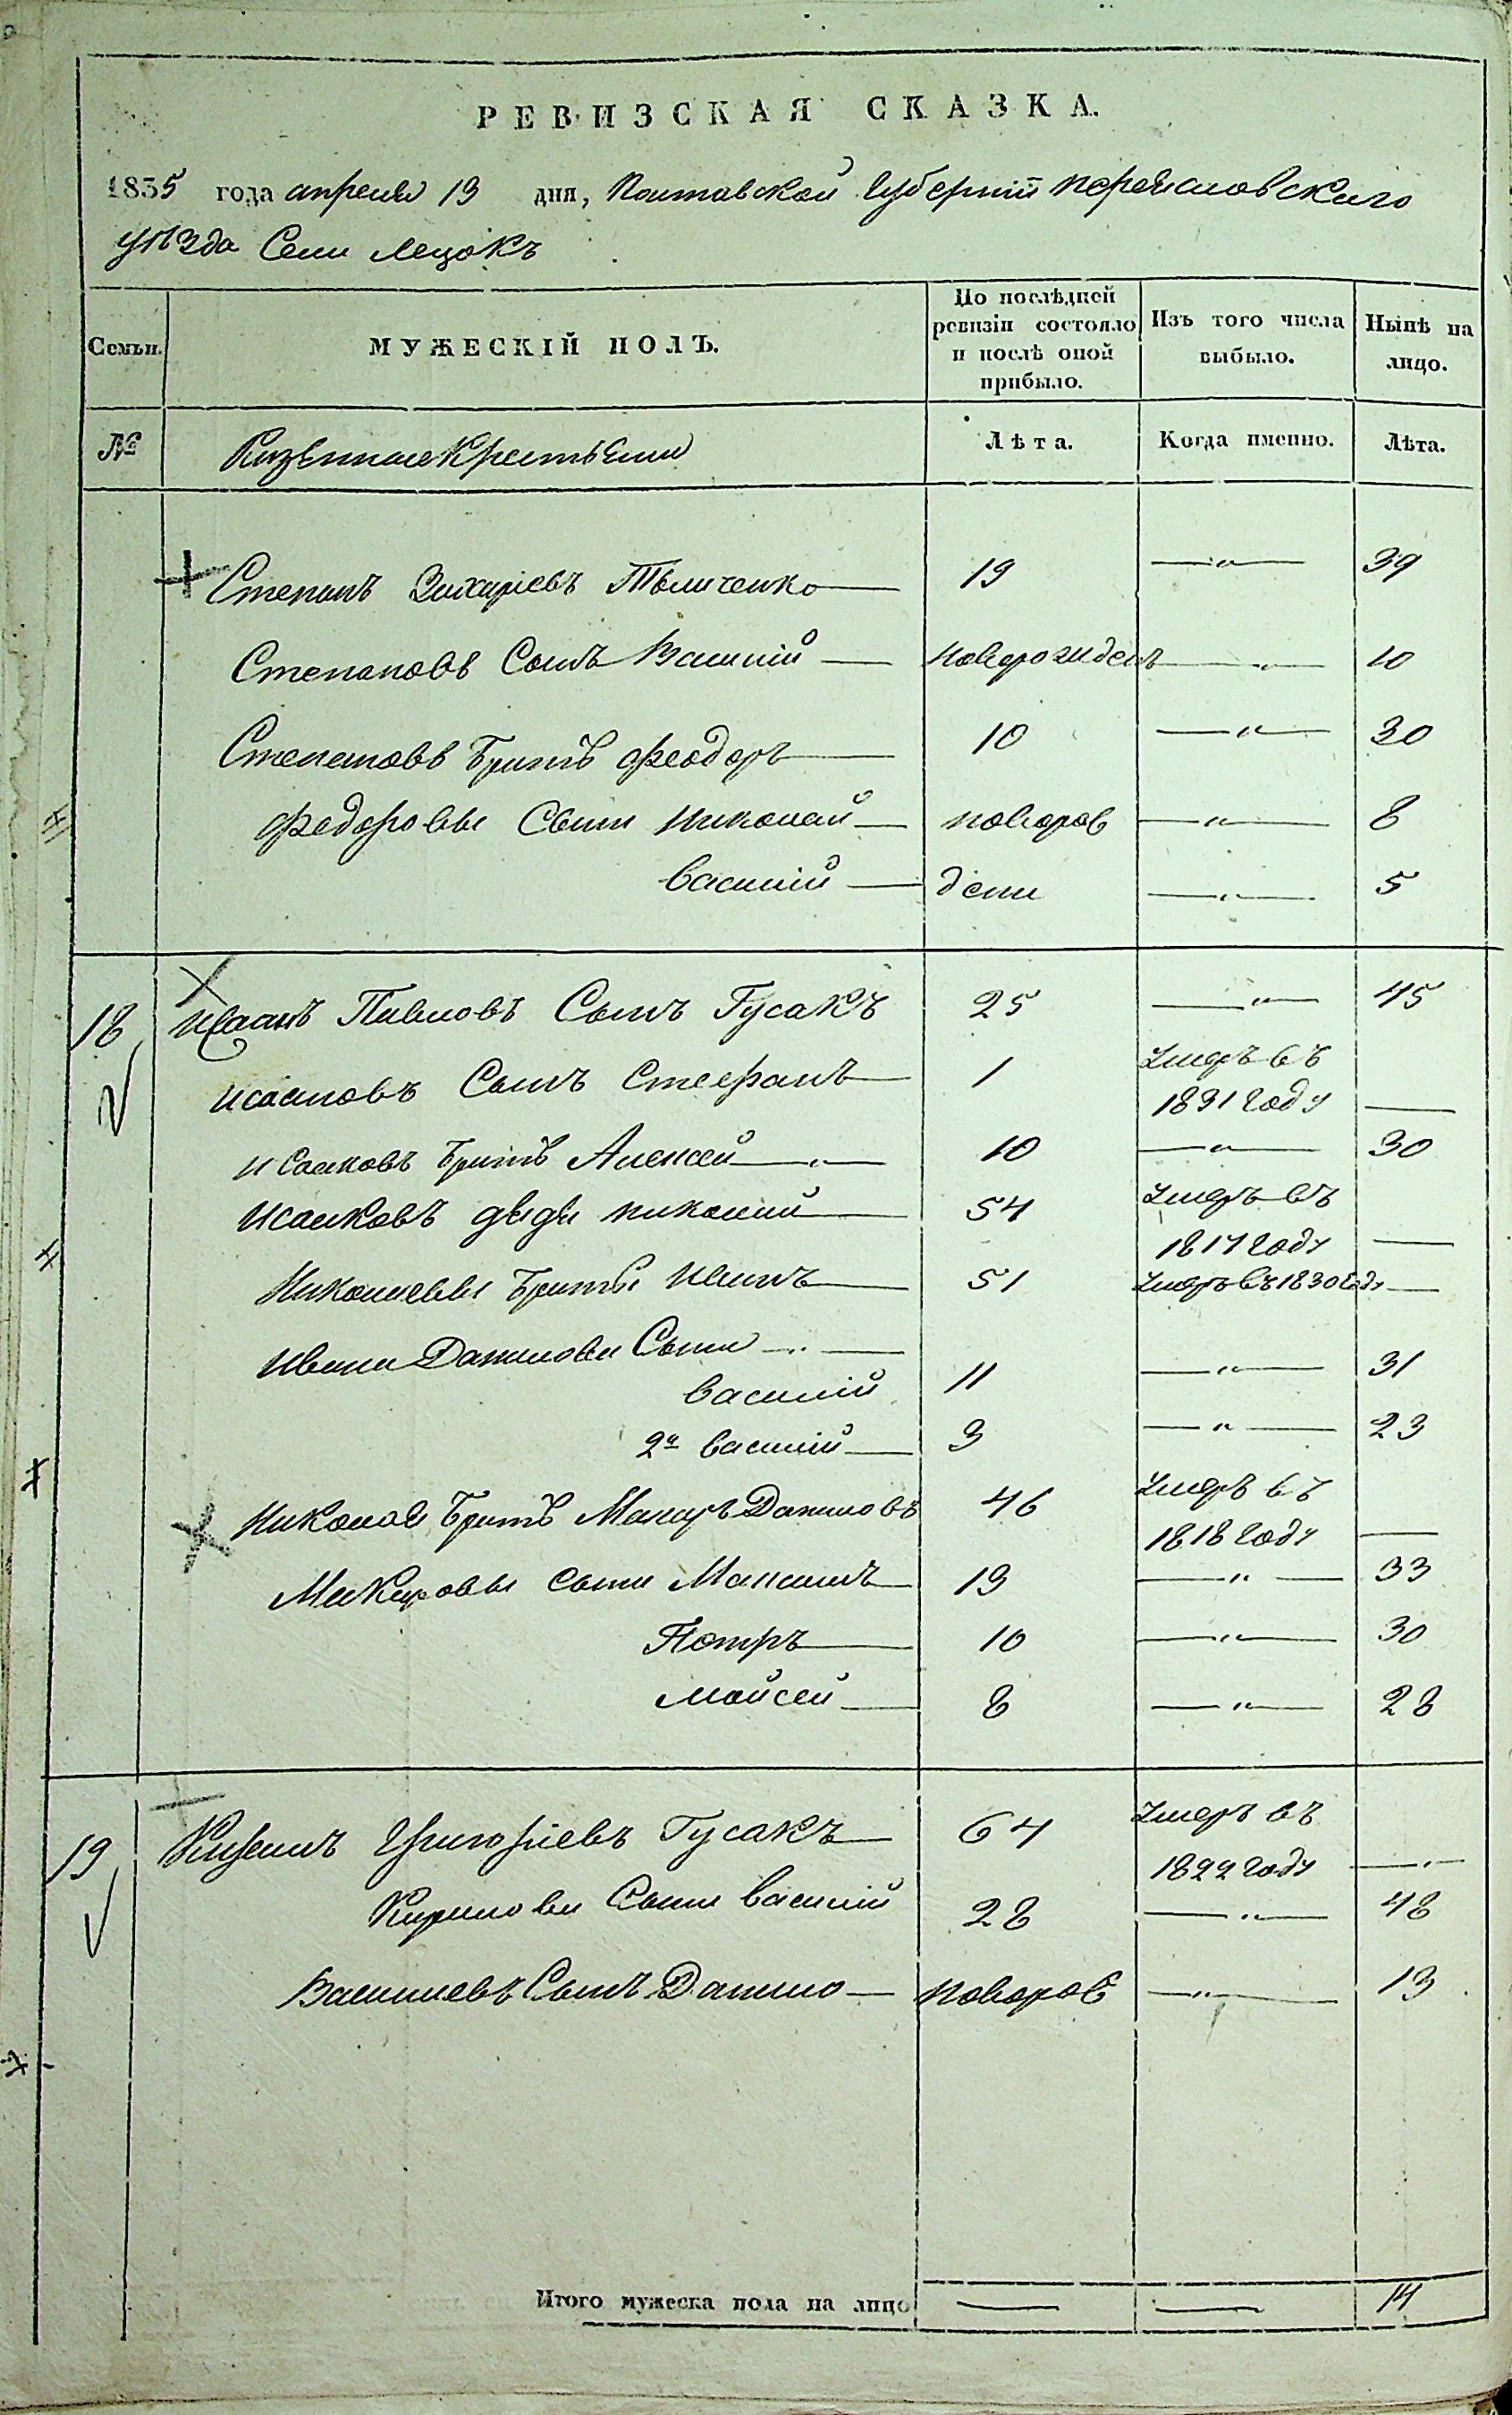 РЕВИЗСКАЯ СКАЗКА.
1835 года апреля 13 дня, Полтавской Губерніи Переясловского
уѣзда Села Лецокъ
Семьи.
МУЖЕСКІЙ ПОЛЪ.
По послѣдней ревизіи состояло и послѣ оной прибыло.
Изъ того числа выбыло.
Нынѣ на лицо.
№ Казенные Крестьяни Лѣта. Когда именно. Лѣта.
Степанъ Захаріевъ 19 — " — 39
Степановъ Сынъ Василій — новорожденъ — " — 10
Степановъ Братъ Феодоръ 10 — " — 30
Федоровы Сыни Николай — новорож — " — 8
Василій — дени — " — 5
18 Исаакъ Павловъ Сынъ Гусакъ 25 — " — 45
Исааковъ Сынъ Стефанъ 1 Умеръ въ
1831 году —
Исааковъ Братъ Алексей — " — 10 — " — 30
Исааковъ дядя Николай 54 Умеръ въ
1817 году —
Николаевы Братья Иванъ 51 Умеръ въ 1830 году —
Ивана Данилова Сыни — " —
Василій 11 — " — 31
2й Василій 3 — " — 23
Николая Братъ Макаръ Даниловъ 46 Умеръ въ
1818 году —
Макаровы сыни Максимъ 13 — " — 33
Петръ 10 — " — 30
Мойсей 8 — " — 28
19 Кирилъ Григоріевъ Гусакъ 64 Умеръ въ
1822 году — " —
Кирилови Сыни Василій 28 — " — 48
Василіевъ Сынъ Данило — новорож — " — 13
Итого мужеска пола на лицо — — 14